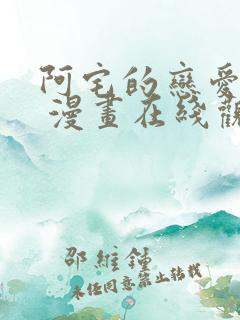 阿宅的戀愛
漫畫在线觀
邵維鍾
未經同意禁止轉載